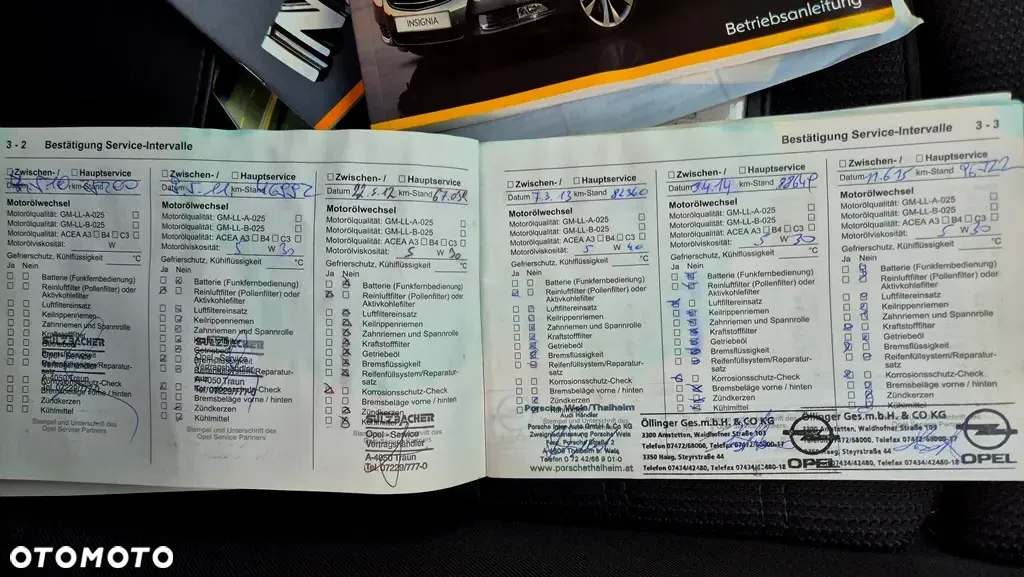 INSIGNIA
Betriebsanleitung
3 - 2 Bestätigung Service-Intervalle
Zwischen- / Hauptservice
Datum km-Stand
Motorölwechsel
Motorölqualität: GM-LL-A-025
Motorölqualität: GM-LL-B-025
Motorölqualität: ACEA A3 B4 C3
Motorölviskosität: W
Gefrierschutz, Kühlflüssigkeit °C
Ja Nein
Batterie (Funkfernbedienung)
Reinluftfilter (Pollenfilter) oder
Aktivkohlefilter
Luftfiltereinsatz
Keilrippenriemen
Zahnriemen und Spannrolle
Kraftstofffilter
SULZBACHER
Bremsflüssigkeit
Korrosionsschutz-Check
Bremsbeläge vorne / hinten
Zündkerzen
Kühlmittel
Stempel und Unterschrift des
Opel Service Partners
Zwischen- / Hauptservice
Datum 5.11 km-Stand
Motorölwechsel
Motorölqualität: GM-LL-A-025
Motorölqualität: GM-LL-B-025
Motorölqualität: ACEA A3 B4 C3
Motorölviskosität: 5 W 30
Gefrierschutz, Kühlflüssigkeit °C
Ja Nein
Batterie (Funkfernbedienung)
Reinluftfilter (Pollenfilter) oder
Aktivkohlefilter
Luftfiltereinsatz
Keilrippenriemen
Zahnriemen und Spannrolle
SULZBACHER
Opel - Service
Vertragshändler
A-4050 Traun
Tel. 07229/777-0
Zündkerzen
Kühlmittel
Stempel und Unterschrift des
Opel Service Partners
Zwischen- / Hauptservice
Datum 22.5.12 km-Stand 67.052
Motorölwechsel
Motorölqualität: GM-LL-A-025
Motorölqualität: GM-LL-B-025
Motorölqualität: ACEA A3 B4 C3
Motorölviskosität: 5 W 30
Gefrierschutz, Kühlflüssigkeit °C
Ja Nein
Batterie (Funkfernbedienung)
Reinluftfilter (Pollenfilter) oder
Aktivkohlefilter
Luftfiltereinsatz
Keilrippenriemen
Zahnriemen und Spannrolle
Kraftstofffilter
Getriebeöl
Bremsflüssigkeit
Reifenfüllsystem/Reparatur-
satz
Korrosionsschutz-Check
Bremsbeläge vorne / hinten
Zündkerzen
SULZBACHER
Opel - Service
Vertragshändler
A-4050 Traun
Tel. 07229/777-0
Bestätigung Service-Intervalle 3 - 3
Zwischen- / Hauptservice
Datum 7.3.13 km-Stand 82360
Motorölwechsel
Motorölqualität: GM-LL-A-025
Motorölqualität: GM-LL-B-025
Motorölqualität: ACEA A3 B4 C3
Motorölviskosität: 5 W 40
Gefrierschutz, Kühlflüssigkeit °C
Ja Nein
Batterie (Funkfernbedienung)
Reinluftfilter (Pollenfilter) oder
Aktivkohlefilter
Luftfiltereinsatz
Keilrippenriemen
Zahnriemen und Spannrolle
Kraftstofffilter
Getriebeöl
Bremsflüssigkeit
Reifenfüllsystem/Reparatur-
satz
Korrosionsschutz-Check
Bremsbeläge vorne / hinten
Zündkerzen
Porsche Wels/Thalheim
Audi Händler
Porsche Inter Auto GmbH & Co KG
Zweigniederlassung Porsche Wels
A-4600 Thalheim b. Wels
www.porschethalheim.at
Zwischen- / Hauptservice
Datum km-Stand
Motorölwechsel
Motorölqualität: GM-LL-A-025
Motorölqualität: GM-LL-B-025
Motorölqualität: ACEA A3 B4 C3
Motorölviskosität: 5 W 30
Gefrierschutz, Kühlflüssigkeit °C
Ja Nein
Batterie (Funkfernbedienung)
Reinluftfilter (Pollenfilter) oder
Aktivkohlefilter
Luftfiltereinsatz
Keilrippenriemen
Zahnriemen und Spannrolle
Kraftstofffilter
Getriebeöl
Bremsflüssigkeit
Reifenfüllsystem/Reparatur-
satz
Korrosionsschutz-Check
Bremsbeläge vorne / hinten
Zündkerzen
Kühlmittel
Öllinger Ges.m.b.H. & CO KG
3300 Amstetten, Waidhofner Straße 103
Telefon 07472/68000, 07472/68000-17
3350 Haag, Steyrstraße 44
Telefon 07434/42480, 07434/42480-18
OPEL
Zwischen- / Hauptservice
Datum 11.6.15 km-Stand 96.122
Motorölwechsel
Motorölqualität: GM-LL-A-025
Motorölqualität: GM-LL-B-025
Motorölqualität: ACEA A3 B4 C3
Motorölviskosität: 5 W 30
Gefrierschutz, Kühlflüssigkeit °C
Ja Nein
Batterie (Funkfernbedienung)
Reinluftfilter (Pollenfilter) oder
Aktivkohlefilter
Luftfiltereinsatz
Keilrippenriemen
Zahnriemen und Spannrolle
Kraftstofffilter
Getriebeöl
Bremsflüssigkeit
Reifenfüllsystem/Reparatur-
satz
Korrosionsschutz-Check
Bremsbeläge vorne / hinten
Zündkerzen
Kühlmittel
Öllinger Ges.m.b.H. & CO KG
3300 Amstetten, Waidhofner Straße 103
Telefon 07472/68000, 07472/68000-17
3350 Haag, Steyrstraße 44
Telefon 07434/42480, 07434/42480-18
OPEL
OTOMOTO